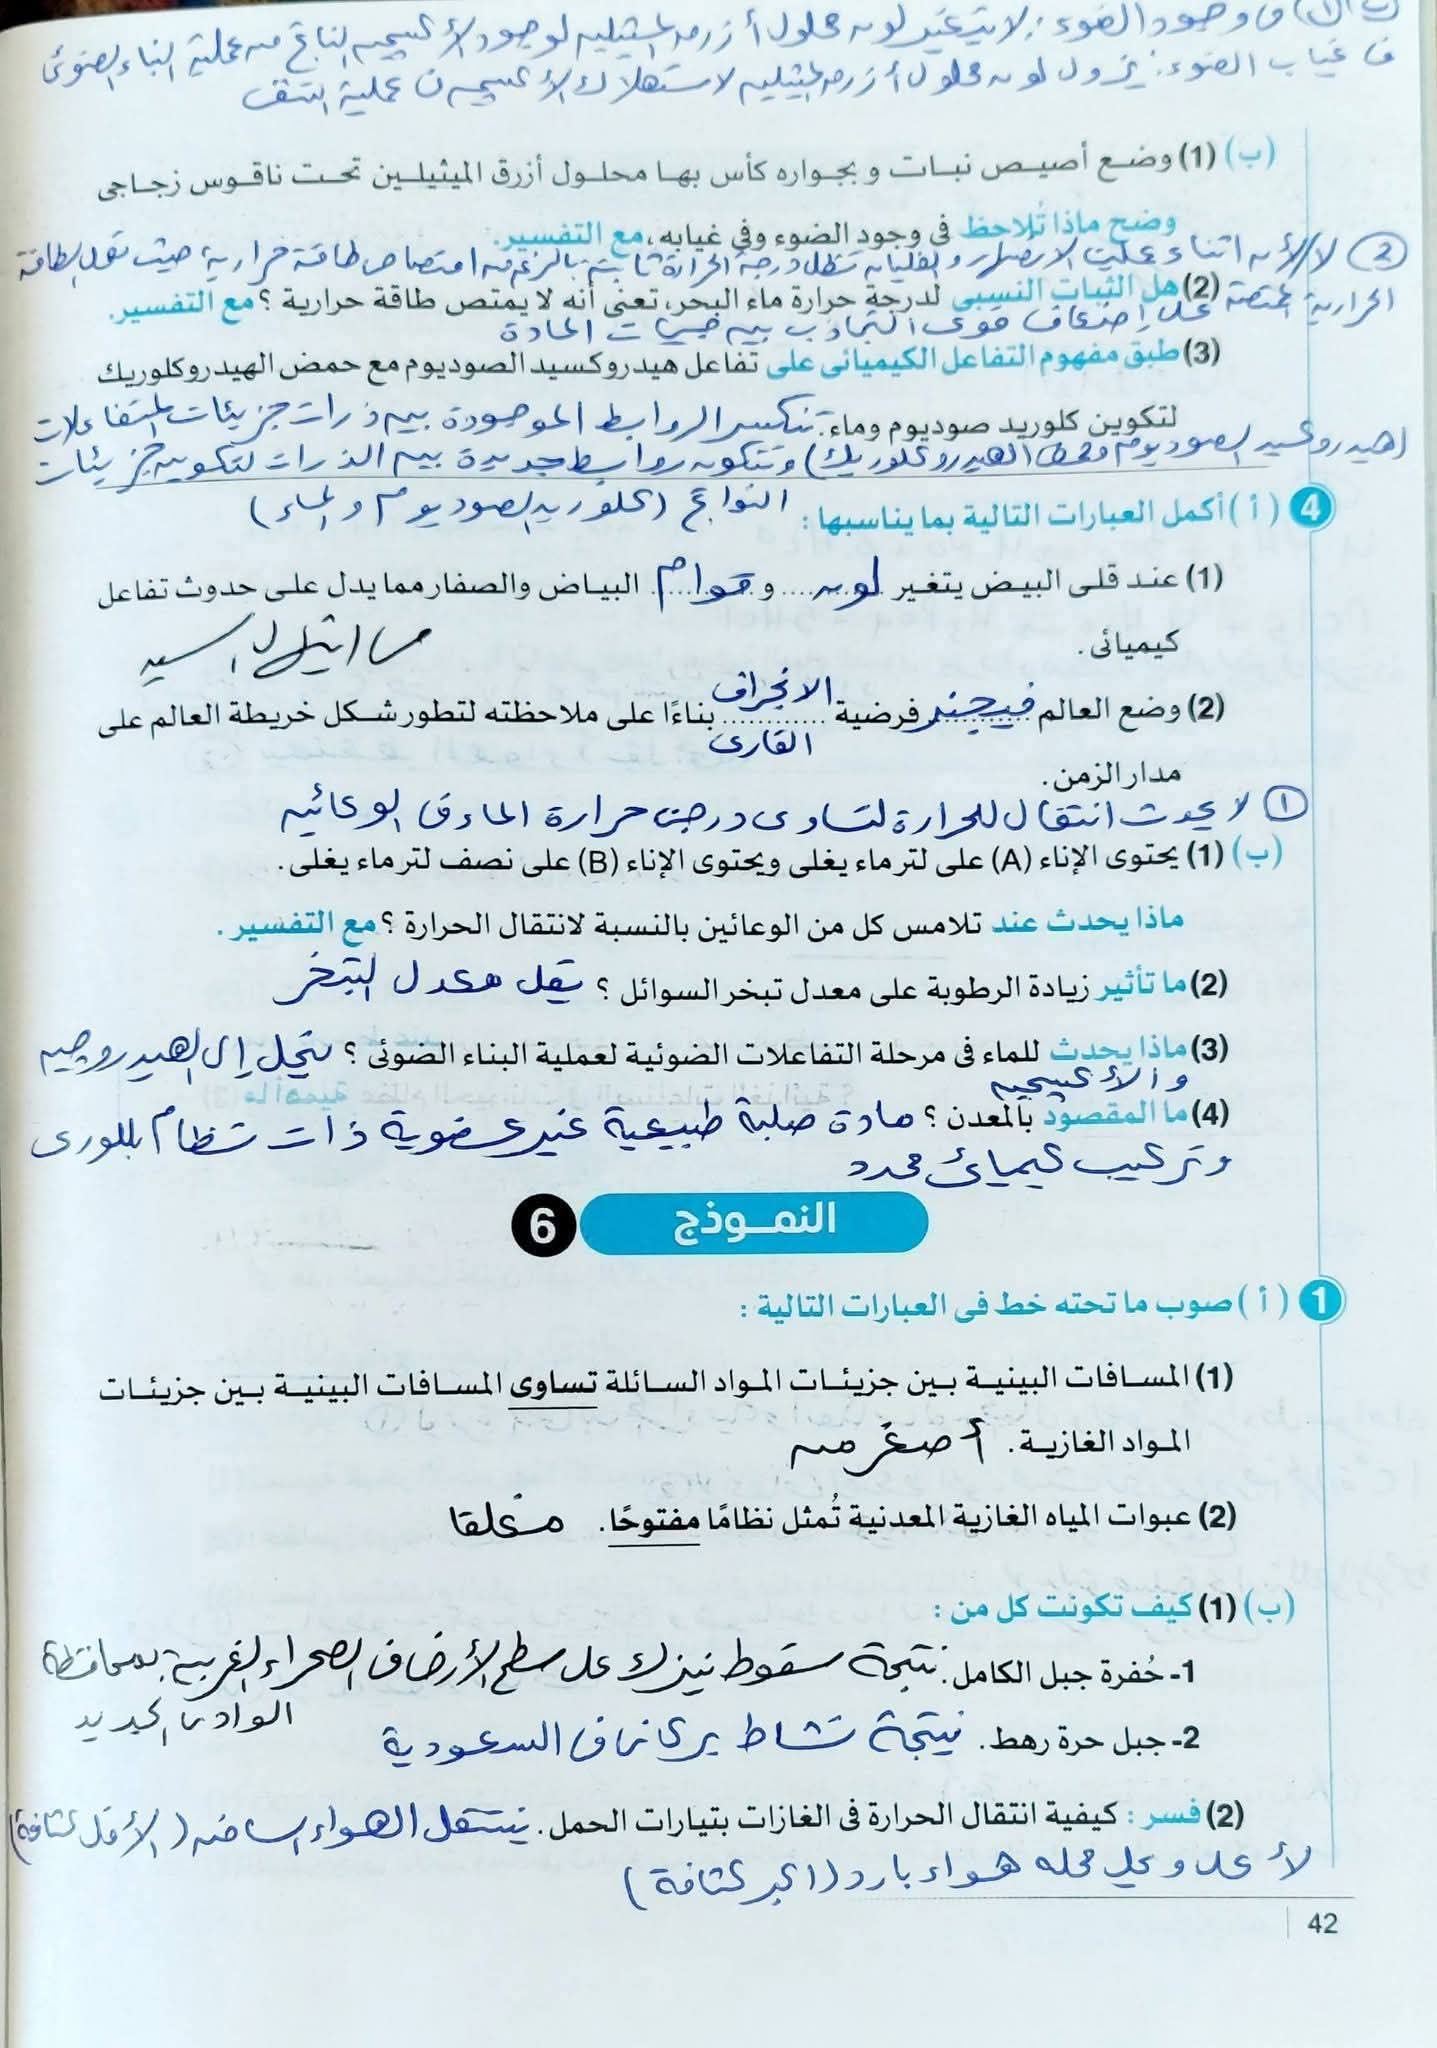 ب (١) فى وجود الضوء: لا يتغير لون محلول أزرق الميثيلين لوجود الأكسجين الناتج من عملية البناء الضوئى
فى غياب الضوء: يزول لون محلول أزرق الميثيلين لاستهلاك الأكسجين فى عملية التنفس
(ب) (1) وضع أصيص نبات وبجواره كأس بها محلول أزرق الميثيلين تحت ناقوس زجاجى
وضح ماذا تُلاحظ فى وجود الضوء وفي غيابه، مع التفسير.
(2) لا لأنه اثناء عمليتى الانصهار والغليان تظل درجة الحرارة ثابتة بالرغم من امتصاص طاقة حرارية حيث تعمل الطاقة
(2) هل الثبات النسبى لدرجة حرارة ماء البحر، تعنى أنه لا يمتص طاقة حرارية ؟ مع التفسير.
الحرارية الممتصة على إضعاف قوى التجاذب بين جسيمات المادة
(3) طبق مفهوم التفاعل الكيميائى على تفاعل هيدروكسيد الصوديوم مع حمض الهيدروكلوريك
لتكوين كلوريد صوديوم وماء. تنكسر الروابط الموجودة بين ذرات جزيئات المتفاعلات
(هيدروكسيد الصوديوم وحمض الهيدروكلوريك) وتتكون روابط جديدة بين الذرات لتكوين جزيئات
النواتج (كلوريد الصوديوم والماء)
4 ( أ ) أكمل العبارات التالية بما يناسبها :
(1) عند قلى البيض يتغير لون و قوام البياض والصفار مما يدل على حدوث تفاعل
كيميائى .
(2) وضع العالم فيجنر فرضية الانجراف القارى بناءًا على ملاحظته لتطور شكل خريطة العالم على
مدار الزمن.
(1) لا يحدث انتقال للحرارة لتساوى درجتى حرارة الماء فى الوعائين
(ب) (1) يحتوى الإناء (A) على لتر ماء يغلى ويحتوى الإناء (B) على نصف لتر ماء يغلى .
ماذا يحدث عند تلامس كل من الوعائين بالنسبة لانتقال الحرارة ؟ مع التفسير .
(2) ما تأثير زيادة الرطوبة على معدل تبخر السوائل ؟ يقل معدل التبخر
(3) ماذا يحدث للماء فى مرحلة التفاعلات الضوئية لعملية البناء الضوئى ؟ يتحلل إلى الهيدروجين
والأكسجين
(4) ما المقصود بالمعدن ؟ مادة صلبة طبيعية غير عضوية ذات نظام بللورى
وتركيب كيميائى محدد
النموذج 6
1 ( أ ) صوب ما تحته خط فى العبارات التالية :
(1) المسافات البينية بين جزيئات المواد السائلة تساوى المسافات البينية بين جزيئات
المواد الغازية. أصغر من
(2) عبوات المياه الغازية المعدنية تُمثل نظامًا مفتوحًا. مغلقا
(ب) (1) كيف تكونت كل من :
1- حُفرة جبل الكامل. نتيجة سقوط نيزك على سطح الأرض فى الصحراء الغربية بمحافظة
الوادى الجديد
2- جبل حرة رهط. نتيجة نشاط بركانى فى السعودية
(2) فسر : كيفية انتقال الحرارة فى الغازات بتيارات الحمل. ينتقل الهواء الساخن (الأقل كثافة)
لأعلى ويحل محله هواء بارد (اكبر كثافة)
42